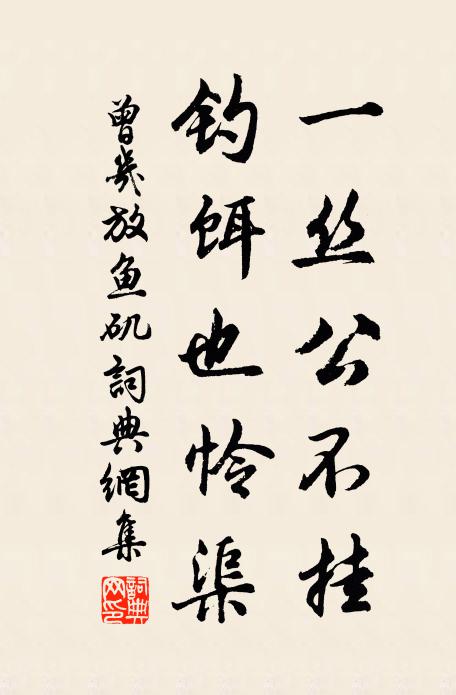 一丝公不挂
钓饵也怜渠
曾几放鱼矶詞典網集
詞典
网印